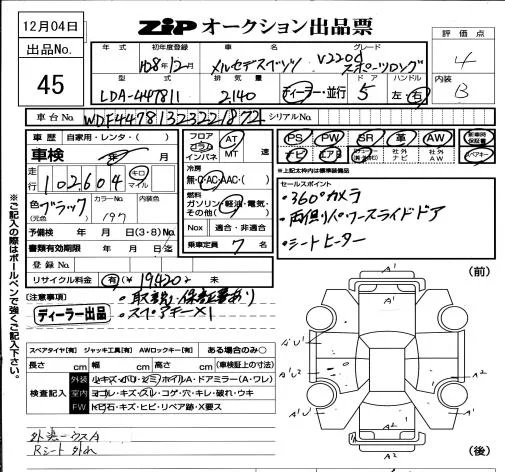 12月04日
ZIP オークション出品票
出品No.
45
評価点
4
内装
B
年式 初年度登録 車名 グレード
H28年12月 メルセデスベンツ V220d スポーツロング
型式 排気量 ドア ハンドル
LDA-447811 2,140 ディーラー・並行 5 左・右
車台No. WDF44781323221872 シリアルNo.
車歴 自家用・レンタ・( )
車検 年 月
走行 102,604 キロ マイル
色 ブラック (元色) カラーNo. 197 内装色
予備検 年 月 日(3・8)No.
書類有効期限 年 月 日迄
登録No.
リサイクル料金 有(¥ 19420 未
フロア コラム インパネ AT MT 速
冷房 無・C・AC・AAC・( )
燃料 ガソリン・軽油・電気・その他( )
Nox 適合・非適合
乗車定員 7 名
PS PW SR 革 AW 新車時保証書
ナビ エアB 社外ナビ 社外AW スペアキー
※上記太枠内は標準装備品
セールスポイント
・360°カメラ
・両側パワースライドドア
・シートヒーター
[注意事項]
・取説・保証書あり
・スペアキー×1
ディーラー出品
スペアタイヤ[有] ジャッキ工具[有] AWロックキー[有] ある場合のみ○
長さ cm 幅 cm 高さ cm (車検証上の寸法)
検査記入
外装 小キズ・小ハリ・シミ・ホイル/A・ドアミラー(A・ワレ)
室内 ヨゴレ・キズ・スレ・コゲ・穴・キレ・破れ・ウキ
FW トビ石・キズ・ヒビ・リペア跡・X要ス
Rシート
※ご記入の際はボールペンで強くご記入下さい。
(前)
A1
A1
A1
A2
A2
A1
(後)